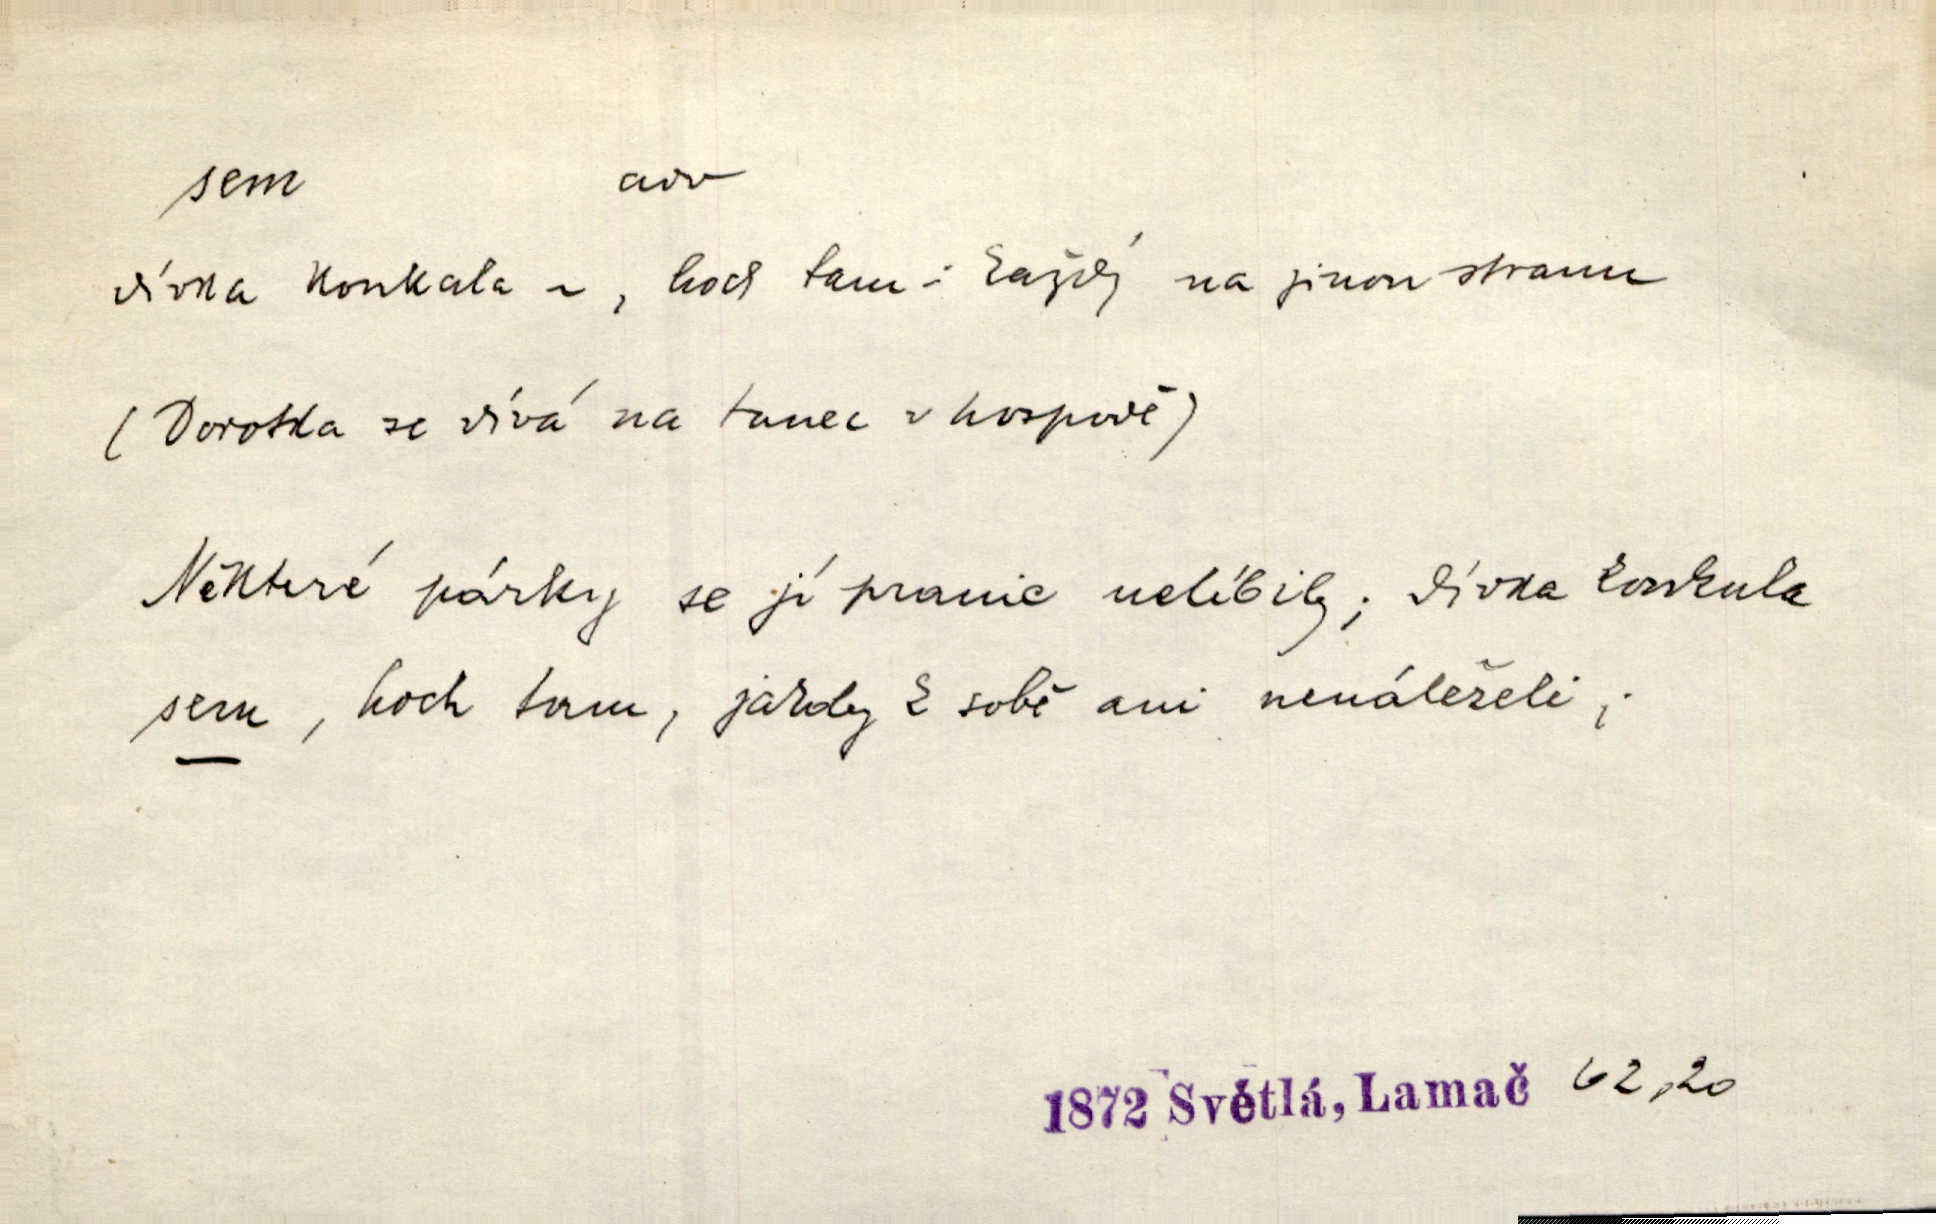 sem adv
dívka koukala ~, hoch tam : každý na jinou stranu
(Dorotka se dívá na tanec v hospodě)
Některé párky se jí pranic nelíbily; dívka koukala
sem, hoch tam, jakoby k sobě ani nenáleželi;
1872 Světlá, Lamač 62,20